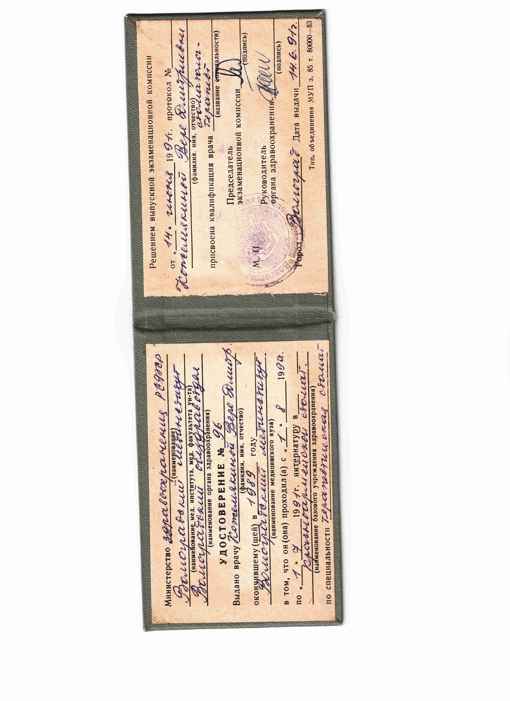 Министерство здравоохранения РСФСР
(название)
Волгоградский мединститут
(наименование мед. института, мед. факультета ун-та)
Волгоградский облздравотдел
(наименование органа здравоохранения)
УДОСТОВЕРЕНИЕ № 96
Выдано врачу Котельжиной Вере Дмитр.
(фамилия, имя, отчество)
окончившему(шей) в 1989 году
Волгоградский мединститут
(наименование медицинского вуза)
в том, что он (она) проходил(а) с „1“ 8 1990.
по „1“ 7 1991 г. интернатуру в
Красноармейской стомат.
(наименование базового учреждения здравоохранения)
по специальности терапевтическая стомат
Решением выпускной экзаменационной комиссии
от „14“ июня 1991 г. протокол №
Вере Дмитриевне
(фамилия, имя, отчество)
присвоена квалификация врача стомато-
терапевт
(название специальности)
Председатель
экзаменационной комиссии
(подпись)
Руководитель
органа здравоохранения
(подпись)
М. П.
Город Волгоград Дата выдачи 14.6.91г.
Тип. объединения МУП з. 85 т. 80000—83